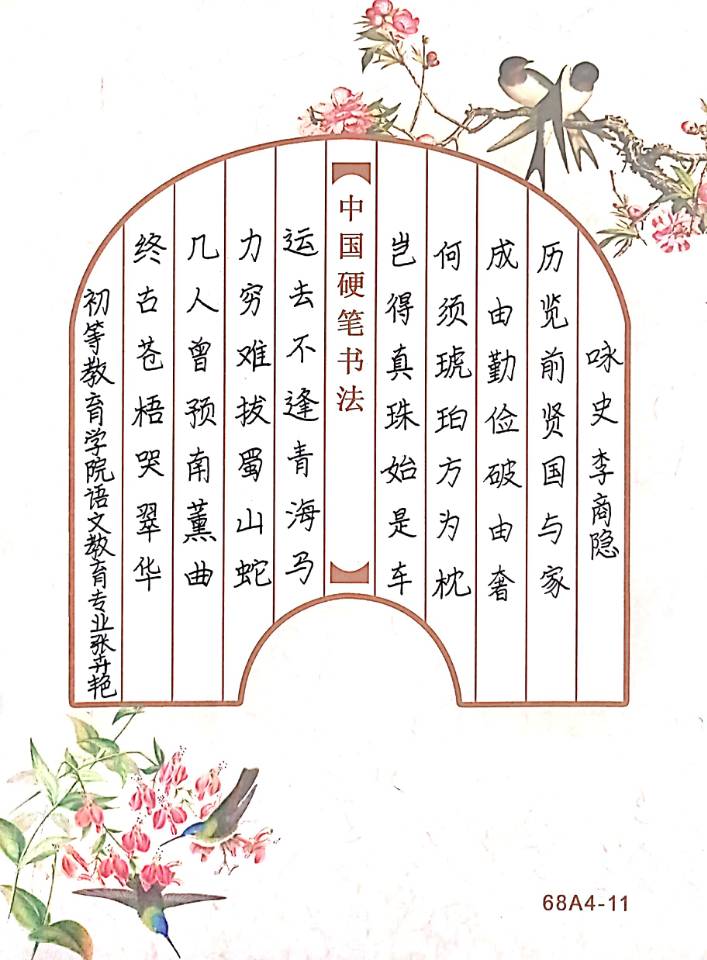 咏史 李商隐
历览前贤国与家
成由勤俭破由奢
何须琥珀方为枕
岂得真珠始是车
中国硬笔书法
运去不逢青海马
力穷难拔蜀山蛇
几人曾预南薰曲
终古苍梧哭翠华
初等教育学院语文教育专业张卉艳
68A4-11